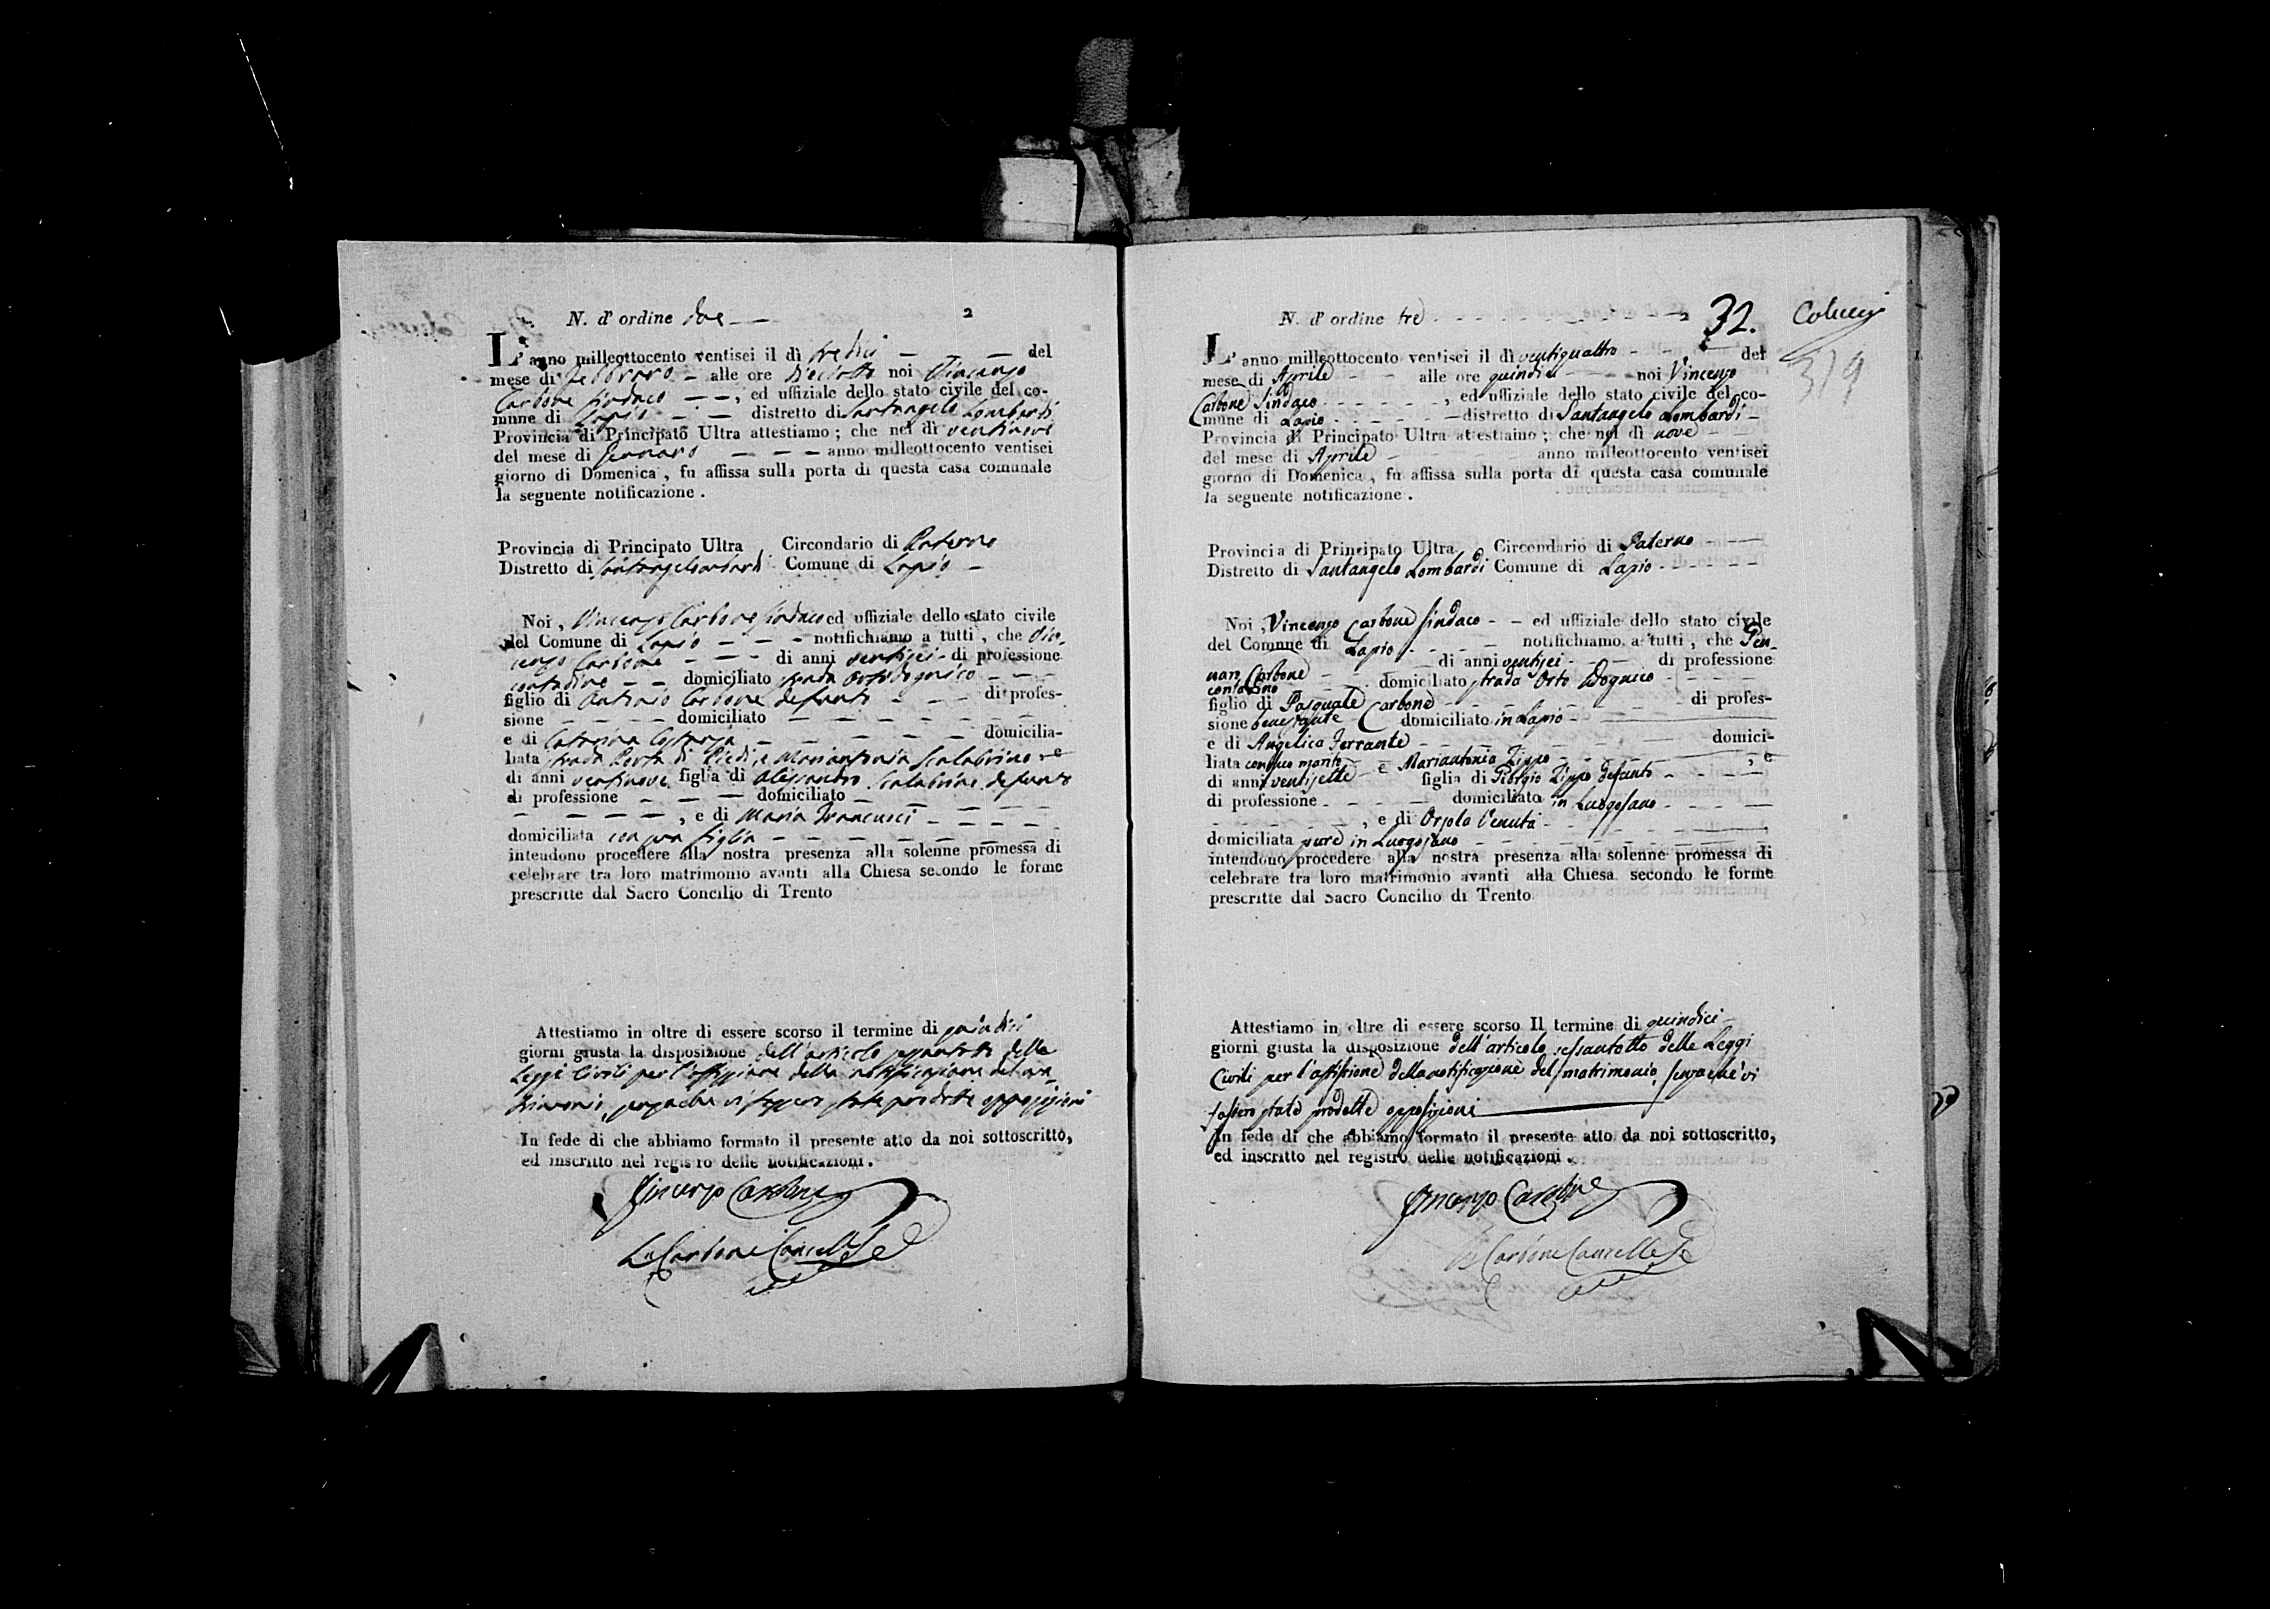 N. d' ordine due
2
L' anno milleottocento ventisei il dì tredici — — del
mese di Febbraro — alle ore dieciotto noi Vincenzo
Carbone Sindaco — —, ed uffiziale dello stato civile del co-
mune di Lapio — — distretto di Santangelo Lombardi
Provincia di Principato Ultra attestiamo ; che nel dì ventinove
del mese di Gennaro — — — anno milleottocento ventisei
giorno di Domenica , fu affissa sulla porta di questa casa comunale
la seguente notificazione .
Provincia di Principato Ultra Circondario di Paterno
Distretto di Santangelo Lombardi Comune di Lapio —
Noi , Vincenzo Carbone Sindaco ed uffiziale dello stato civile
del Comune di Lapio — — — notifichiamo a tutti , che Vin-
cenzo Carbone — — — di anni ventisei - di professione
contadino — — domiciliato strada Ortodognico — — —
figlio di Antonio Carbone defunto — — — di profes-
sione — — — — domiciliato — — — — — —
e di Catarina — — — — — — domicilia-
liata strada Porta di Piedi, e Mariantonia Scalabrino — e
di anni ventinove figlia di Alessandro Scalabrino defunto
di professione — — — domiciliato — — — — —
— — — — — , e di Maria Francucci — — — —
domiciliata con sua figlia — — — — — — — —
intendono procedere alla nostra presenza alla solenne promessa di
celebrare tra loro matrimonio avanti alla Chiesa secondo le forme
prescritte dal Sacro Concilio di Trento
Attestiamo in oltre di essere scorso il termine di quindici
giorni giusta la disposizione dell'articolo sessantotto delle
Leggi Civili per l'affissione della notificazione del ma-
trimonio, senzache vi fossero state prodotte opposizioni
In fede di che abbiamo formato il presente atto da noi sottoscritto,
ed inscritto nel registro delle notificazioni .
Vincenzo Carbone
Carbone Cancelle
N. d' ordine tre
32.
Colucci
319
L' anno milleottocento ventisei il dì ventiquattro - - — del
mese di Aprile - - alle ore quindici - - noi Vincenzo
Carbone Sindaco - - - - - , ed uffiziale dello stato civile del co-
mune di Lapio - - - - — distretto di Santangelo Lombardi —
Provincia di Principato Ultra attestiamo ; che nel dì nove
del mese di Aprile - anno milleottocento ventisei
giorno di Domenica , fu affissa sulla porta di questa casa comunale
la seguente notificazione .
Provincia di Principato Ultra Circondario di Paterno - - —
Distretto di Santangelo Lombardi Comune di Lapio - - - - -
Noi , Vincenzo Carbone Sindaco - - ed uffiziale dello stato civile
del Comune di Lapio - - - - — notifichiamo a tutti , che Gen-
naro Carbone - - — di anni ventisei - - — di professione
contadino - - domiciliato strada Orto Dognico - - - -
figlio di Pasquale Carbone - - - - - - di profes-
sione benestante - domiciliato in Lapio - —
e di Angelica Ferrante - - - - - - domici-
liata con suo marito - e Mariantonia Zippo - - - - , e
di anni ventisette figlia di Giorgio Zippo defunto - - - -
di professione - - - — domiciliato in Luogosano - - - —
- - - - - — , e di Orsola Venuta - - - - - -
domiciliata pure in Luogosano - - - - - - - -
intendono procedere alla nostra presenza alla solenne promessa di
celebrare tra loro matrimonio avanti alla Chiesa secondo le forme
prescritte dal Sacro Concilio di Trento
Attestiamo in oltre di essere scorso Il termine di quindici
giorni giusta la disposizione dell'articolo sessantotto delle Leggi
Civili per l'affissione della notificazione del matrimonio, senza che vi
fossero state prodotte opposizioni —
In fede di che abbiamo formato il presente atto da noi sottoscritto,
ed inscritto nel registro delle notificazioni .
Vincenzo Carbone
Carbone Cancelle